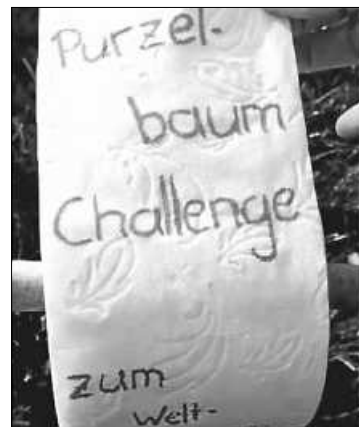 Purzel-
baum
Challenge
zum
Welt-